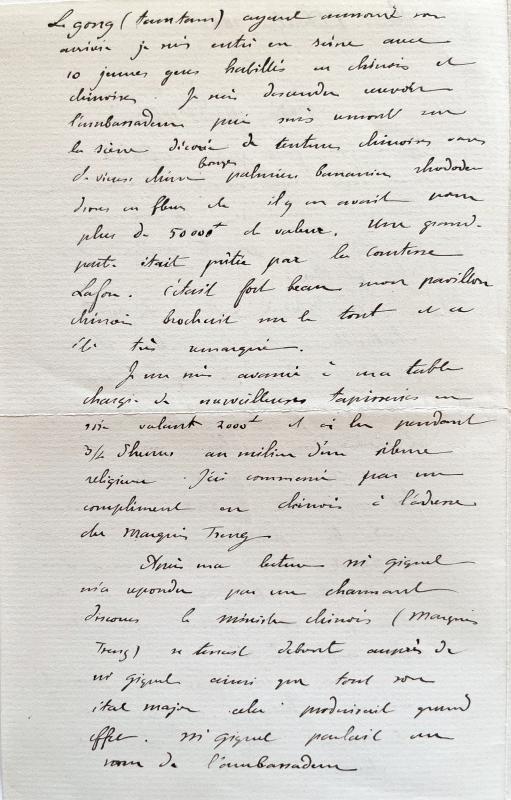 Le gong (tamtam) ayant annoncé son
arrivée je suis entré en scène avec
10 jeunes gens habillés en chinois et
chinoises. Je suis descendu recevoir
l'ambassadeur puis suis remonté sur
la scène décorée de tentures chinoises vases
de vieux chine bronzes palmiers bananiers rhododen
drons en fleur etc il y en avait pour
plus de 50000f de valeur. Une grande
partie était prêtée par la comtesse
Lafon. C'était fort beau mon pavillon
chinois brochait sur le tout et a
été très remarqué.
Je me suis avancé à ma table
chargée de merveilleuses tapisseries en
soie valant 2000f et ai lu pendant
3/4 d'heures au milieu d'un silence
religieux. J'ai commencé par un
compliment en chinois à l'adresse
du Marquis Tseng
Après ma lecture Mr Giquel
m'a répondu par un charmant
discours le ministre chinois (Marquis
Tseng) se tenait debout auprès de
Mr Giquel ainsi que tout son
état major cela produisait grand
effet. Mr Giquel parlait au
nom de l'ambassadeur